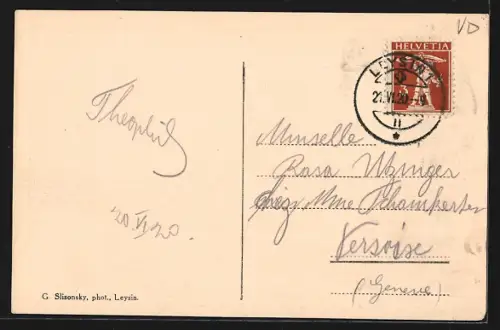 VD
HELVETIA
LEYSIN
21.VI.20
II
Theophil
20 VI 20.
Mmselle
Rosa Utzinger
chez Mme Schankerten
Versoise
(Geneve)
G. Slizonsky, phot., Leysin.